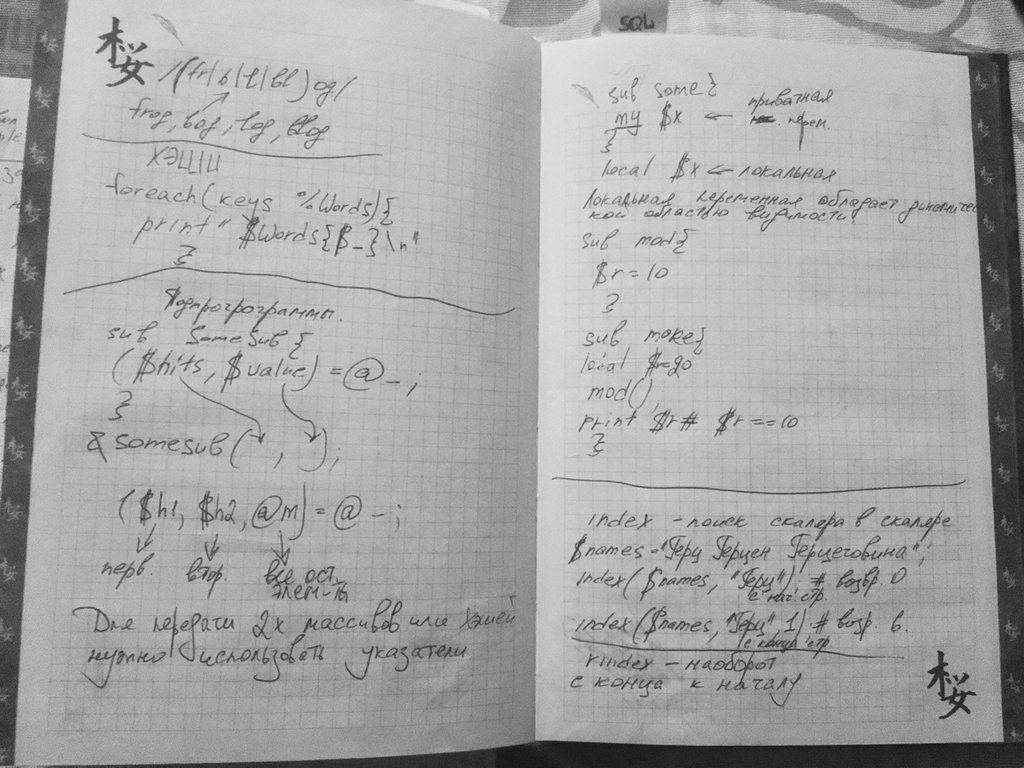 SQL
桜
/(fr|b|l|bl)og/
frog, bog, log, blog
ХЭШИ
foreach(keys %Words){
print" $Words{$_}\n"
}
Подпрогрограммы.
sub SomeSub {
($hits, $value) = @_;
}
& somesub( , );
($h1, $h2, @m) = @_;
перв. втор. все ост.
элем-ты
Для передачи 2х массивов или Хэшей
нужно использовать указатели
sub some{
my $x ← приватная
перем.
}
local $x ← локальная
Локальная переменная обладает динамичес
кой областью видимости.
sub mod{
$r=10
}
sub make{
local
mod()
print $r # $r==10
}
index - поиск скаляра в скаляре
$names="Герц Герцен Герцеговина";
index($names, "Герц"); # возвр. 0
с нач. стр.
index($names, "Герц" 1) # возвр. 6.
с конца стр
rindex - наоборот
с конца к началу
桜